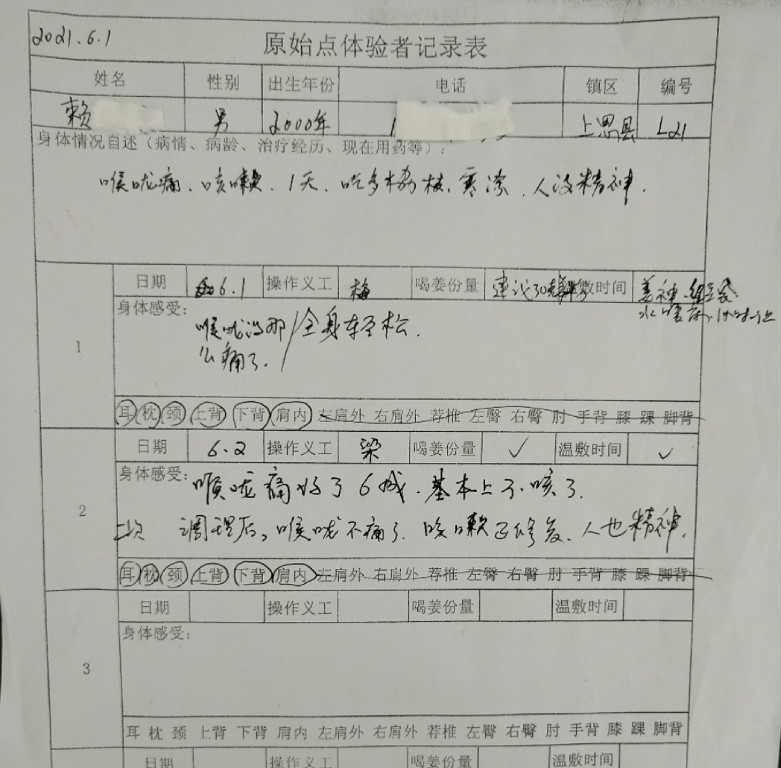 2021.6.1
原始点体验者记录表
姓名 性别 出生年份 电话 镇区 编号
赖 男 2000年 1 上思县 L21
身体情况自述（病情、病龄、治疗经历、现在用药等）：
喉咙痛、咳嗽、1天、吃多 枝、寒凉、人没精神.
1
日期 6.1 操作义工 梅 喝姜份量 建议30 敷时间
身体感受：
喉咙没那么痛了. / 全身轻松.
耳 枕 颈 上背 下背 肩内 左肩外 右肩外 荐椎 左臀 右臀 肘 手背 膝 踝 脚背
2
日期 6.2 操作义工 梁 喝姜份量 ✓ 温敷时间 ✓
身体感受：
喉咙痛好了6成.基本上不咳了.
二次 调理后,喉咙不痛了.咳嗽 修复.人也精神.
耳 枕 颈 上背 下背 肩内 左肩外 右肩外 荐椎 左臀 右臀 肘 手背 膝 踝 脚背
3
日期 操作义工 喝姜份量 温敷时间
身体感受：
耳 枕 颈 上背 下背 肩内 左肩外 右肩外 荐椎 左臀 右臀 肘 手背 膝 踝 脚背
日期 操作义工 喝姜份量 温敷时间